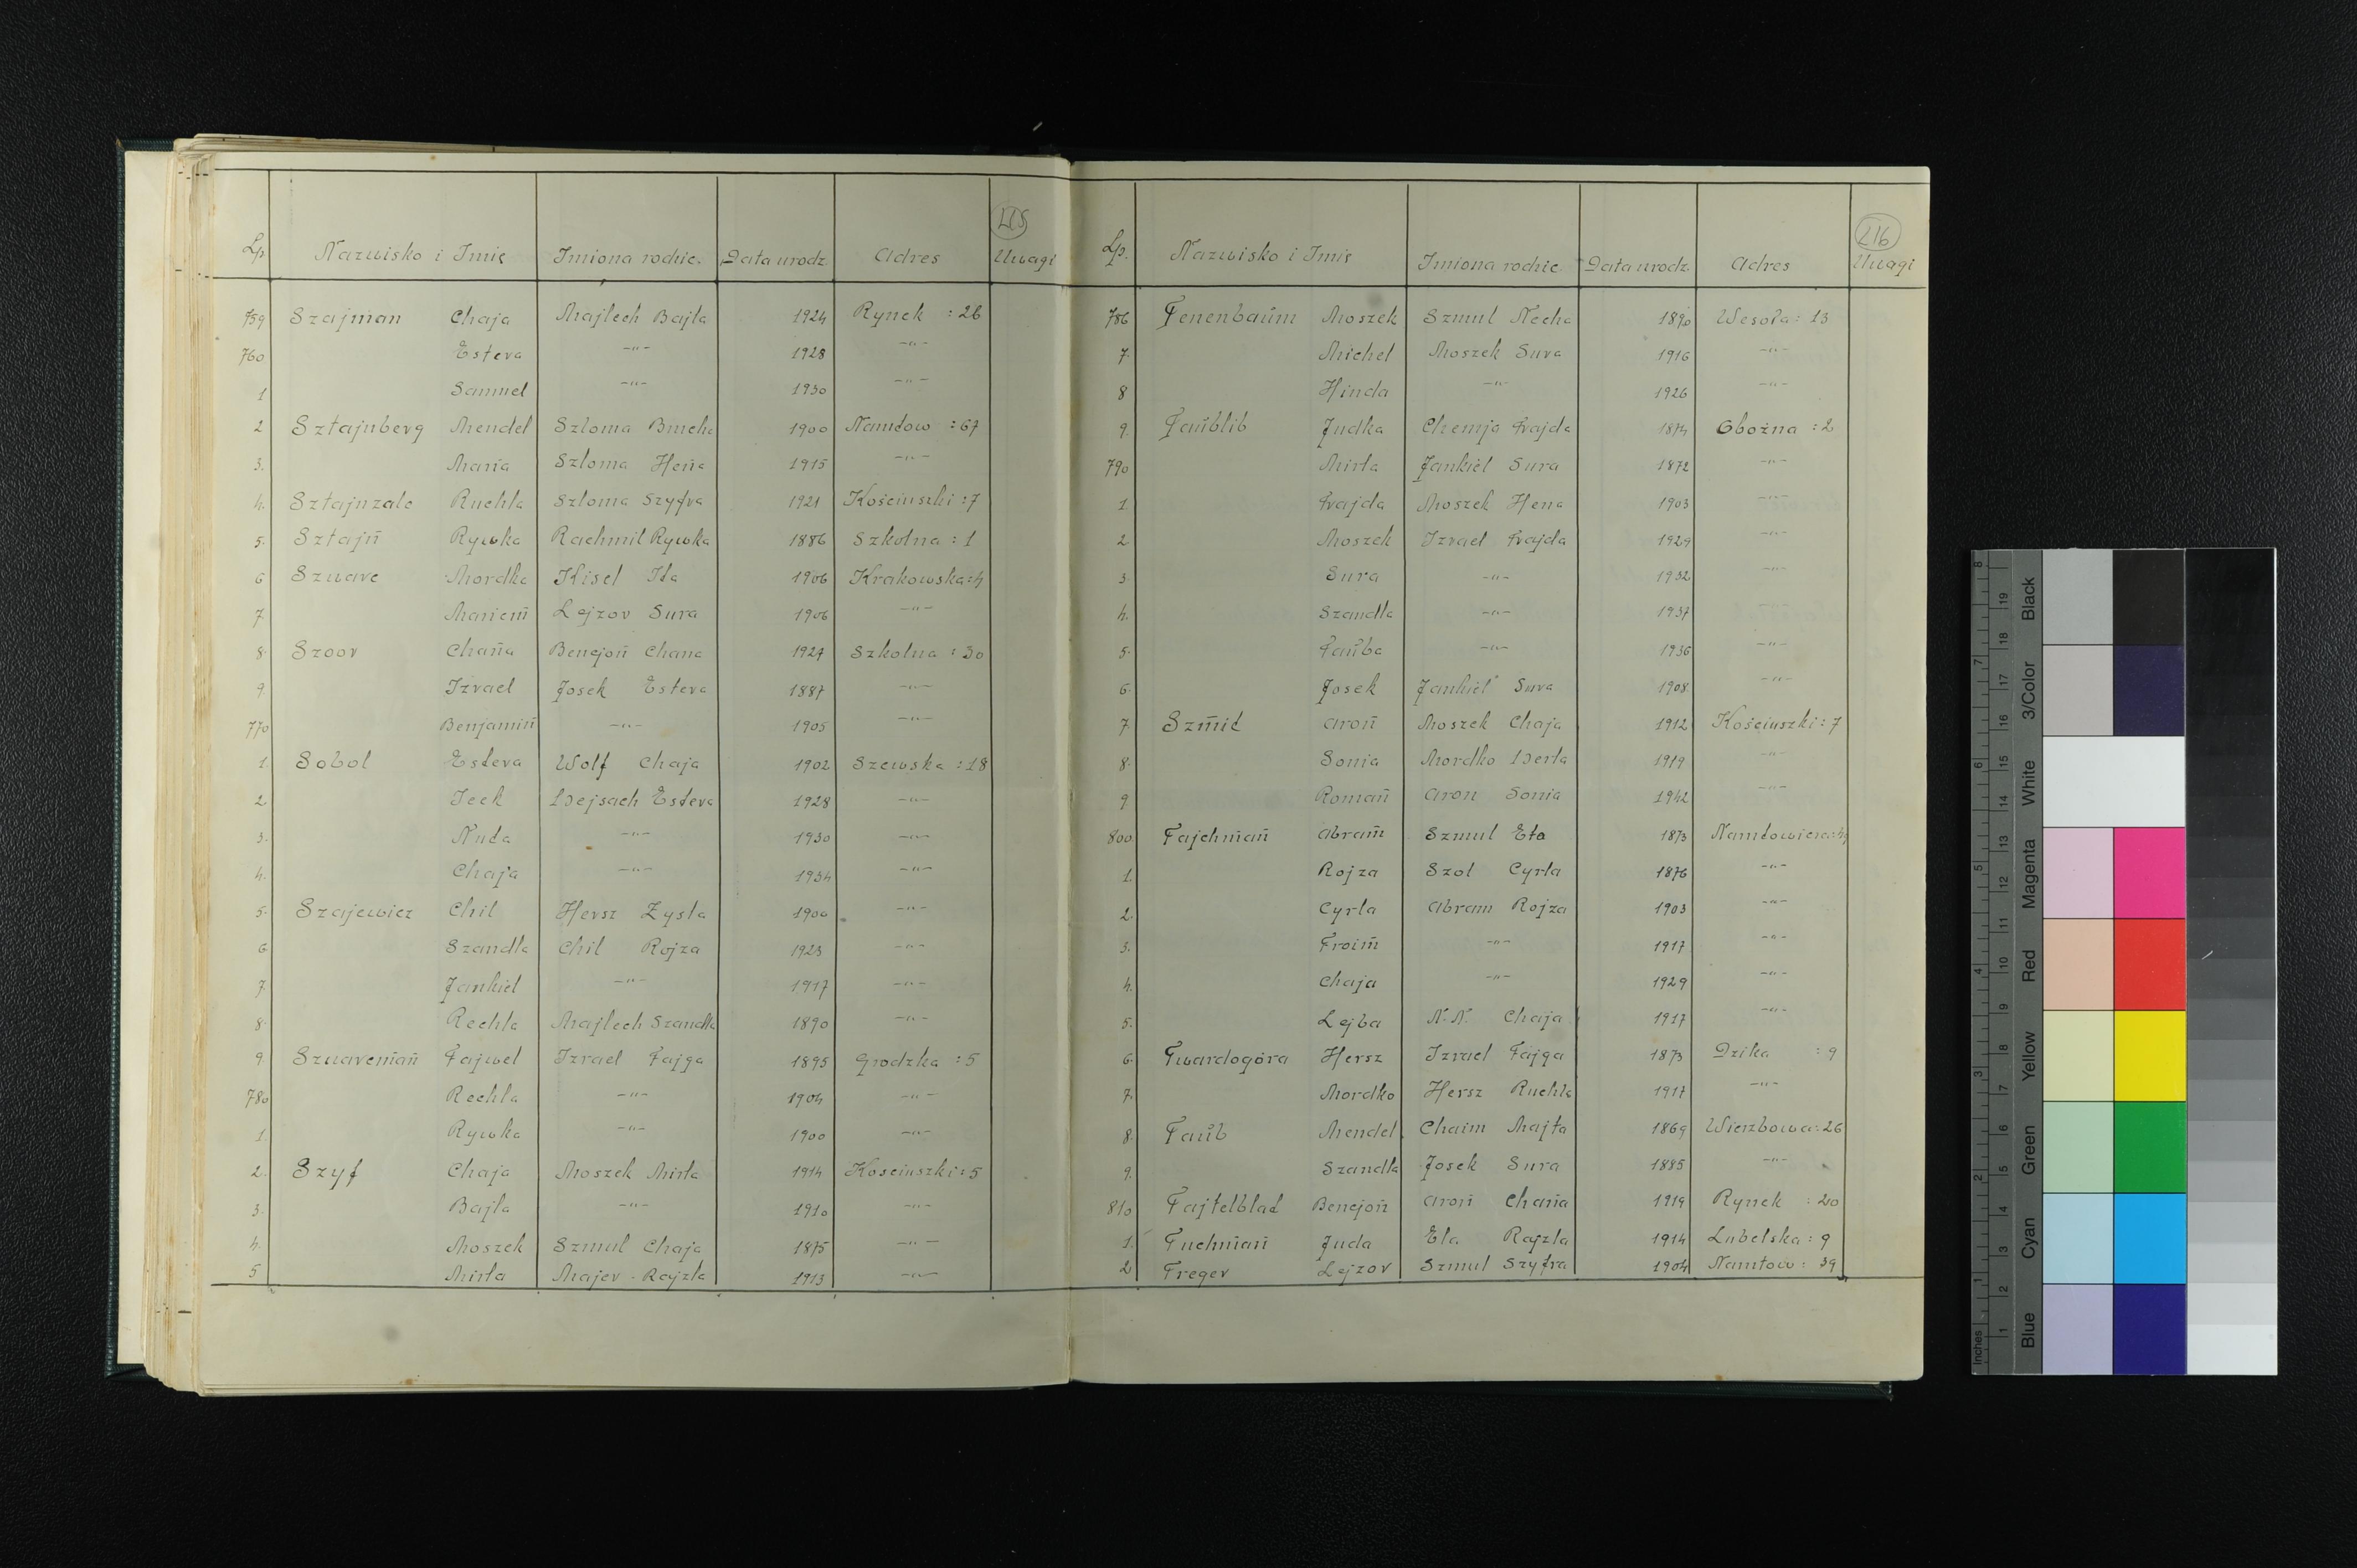 215
Lp. Nazwisko i Imię Imiona rodzic. Data urodz. Adres Uwagi
759 Szajman Chaja Majlech Bajla 1924 Rynek : 26
760 Estera -"- 1928 -"-
1 Samuel -"- 1930 -"-
2 Sztajnberg Mendel Szloma 1900 Narutow : 67
3. Mania Szloma Hena 1915 -"-
4. Sztajnzalc Ruchla Szloma Szyfra 1921 Kościuszki : 7
5. Sztajn Rywka Rachmil Rywka 1886 Szkolna : 1
6 Szwarc Mordka Kisel Ita 1906 Krakowska : 4
7. Mariem Lejzor Sura 1906 -"-
8. Szoor Chana Benejon Chana 1927 Szkolna : 30
9. Izrael Josek Estera 1887 -"-
770 Benjamin -"- 1905 -"-
1. Sobol Estera Wolf Chaja 1902 Szewska : 18
2 Icek Dejsach Estera 1928 -"-
3. Nuta -"- 1930 -"-
4. Chaja -"- 1934 -"-
5. Szajewicz Chil Hersz Zysla 1900 -"-
6 Szandla Chil Rojza 1923 -"-
7. Jankiel -"- 1917 -"-
8. Rechla Majlech Szandla 1890 -"-
9 Szwareman Fajwel Izrael Fajga 1895 Grodzka : 5
780 Rechla -"- 1904 -"-
1. Rywka -"- 1900 -"-
2. Szyf Chaja Moszek Mirla 1914 Kosciuszki : 5
3. Bajla -"- 1910 -"-
4. Moszek Szmul Chaja 1875 -"-
5 Mirla Majer Rajzla 1913 -"-
216
Lp. Nazwisko i Imię Imiona rodzic. Data urodz. Adres Uwagi
786 Tenenbaum Moszek Szmul Necha 1890 Wesoła : 13
7. Michel Moszek Sura 1916 -"-
8 Hinda -"- 1926 -"-
9. Taublib Judka Chemja Frajda 1874 Obożna : 2
790 Mirla Jankiel Sura 1872 -"-
1 Frajda Moszek Hena 1903 -"-
2 Moszek Izrael Frajda 1929 -"-
3. Sura -"- 1932 -"-
4. Szandla -"- 1937 -"-
5. Tauba -"- 1936 -"-
6. Josek Jankiel Sura 1908 -"-
7. Szmid Aron Moszek Chaja 1912 Kościuszki : 7
8. Sonia Mordko Derla 1919 -"-
9 Roman Aron Sonia 1942 -"-
800 Tajchman Abram Szmul Eta 1873 Narutowicza :
1. Rojza Szol Cyrla 1876 -"-
2. Cyrla Abram Rojza 1903 -"-
3. Froim -"- 1917 -"-
4. Chaja -"- 1929 -"-
5. Lejba N.N. Chaja 1917 -"-
6 Twardogóra Hersz Izrael Fajga 1873 Dzika : 9
7. Mordko Hersz Ruchla 1917 -"-
8. Taub Mendel Chaim Majta 1869 Wierzbowa : 26
9. Szandla Josek Sura 1885 -"-
810 Tajtelblad Benejon Aron Chana 1919 Rynek : 20
1. Tuchman Juda Ela Rajzla 1914 Lubelska : 9
2 Treger Lejzor Szmul Szyfra 1904 Narutow : 39
Inches 1 2 3 4 5 6 7 8
1 2 3 4 5 6 7 8 9 10 11 12 13 14 15 16 17 18 19
Blue Cyan Green Yellow Red Magenta White 3/Color Black